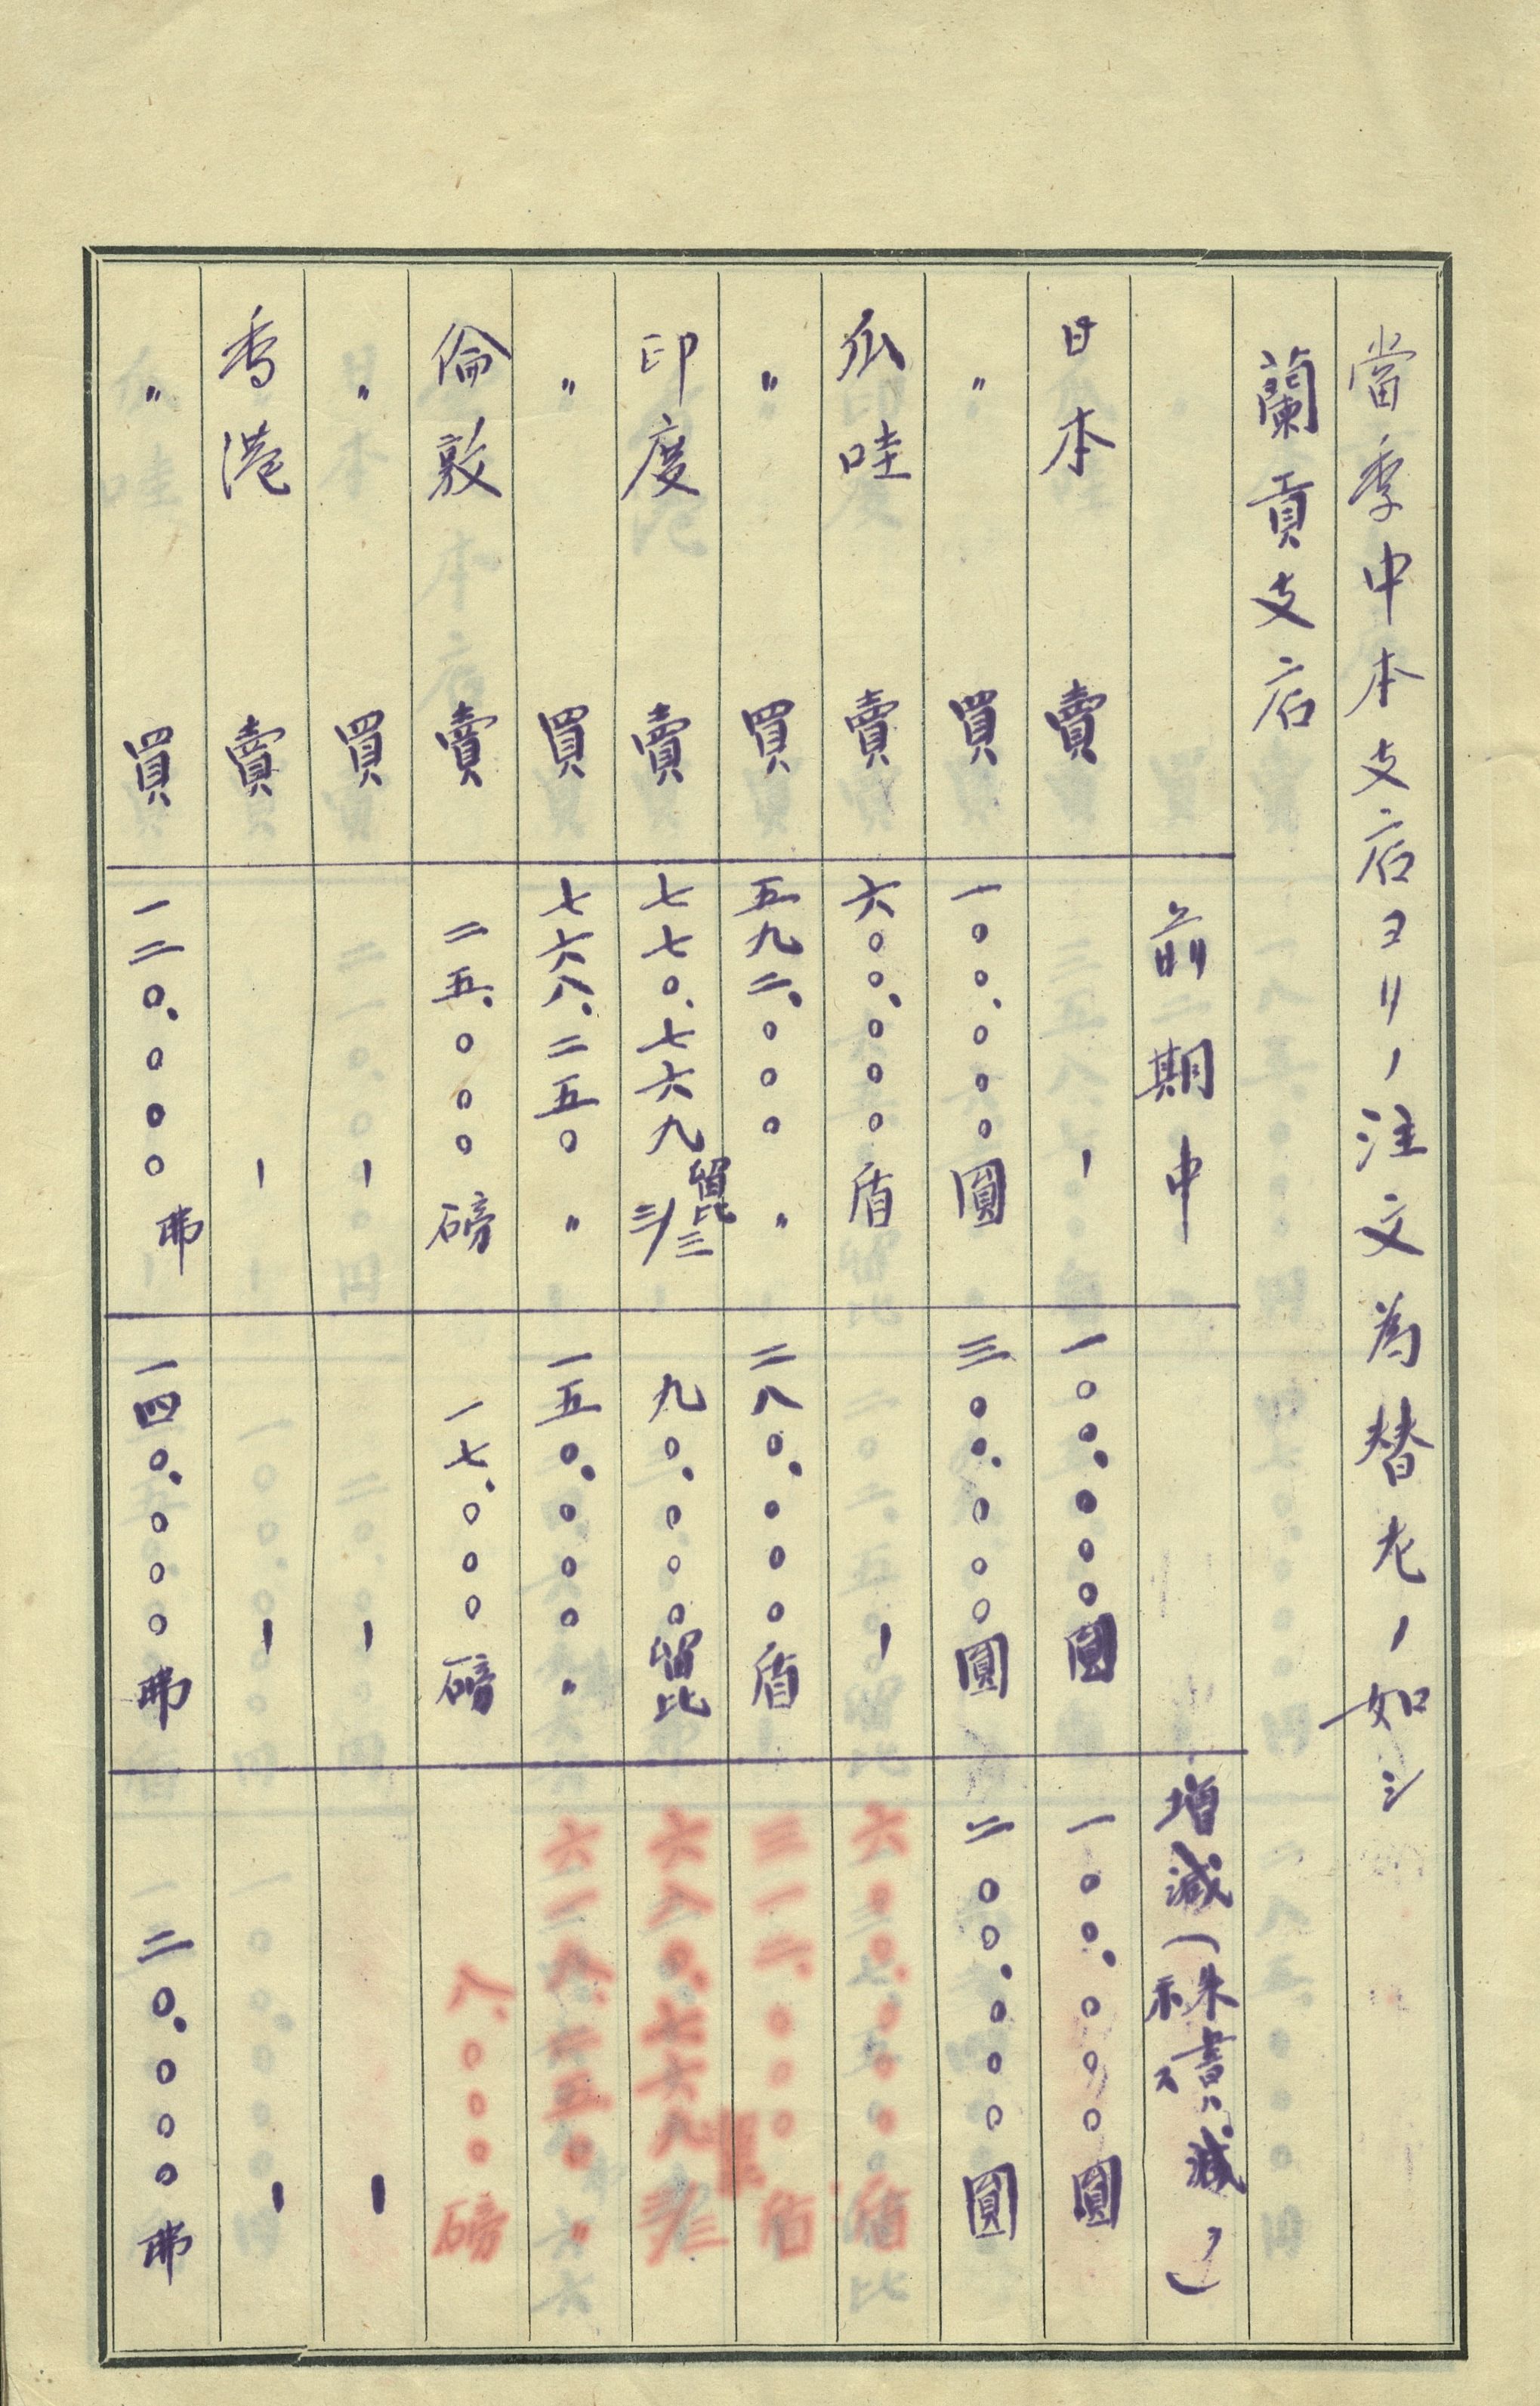 當季中本支店ヨリノ注文為替左ノ如シ
蘭貢支店
前期中 増減(朱書ハ減ヲ示ス)
日本 賣 ー 一〇〇.〇〇〇圓 一〇〇.〇〇〇圓
〃 買 一〇〇.〇〇〇圓 三〇〇.〇〇〇圓 二〇〇.〇〇〇圓
爪哇 賣 六〇〇.〇〇〇盾 ー 六〇〇.〇〇〇盾
〃 買 五九二.〇〇〇〃 二八〇.〇〇〇盾 三一二.〇〇〇盾
印度 賣 七七〇.七六九留比三/三 九〇.〇〇〇留比 六八〇.七六九留比三/三
〃 買 七六八.二五〇〃 一五〇.〇〇〇〃 六一八.二五〇〃
倫敦 賣 二五.〇〇〇磅 一七.〇〇〇磅 八.〇〇〇磅
〃 買 ー ー ー
香港 賣 ー ー ー
〃 買 一二〇.〇〇〇弗 一四〇.〇〇〇弗 二〇.〇〇〇弗